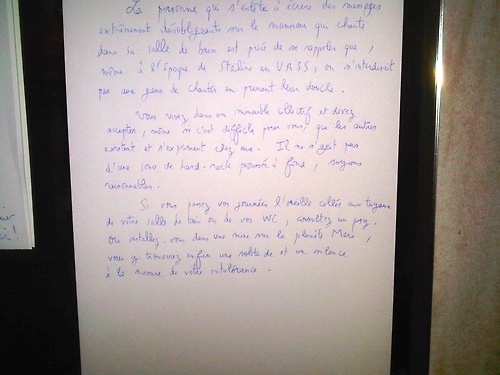 La personne qui s'entête à écrire des messages
extrêmement désobligeants sur le monsieur qui chante
dans sa salle de bain est priée de se rappeler que,
même à l'époque de Staline en URSS, on n'interdisait
pas aux gens de chanter en prenant leur douche.
Vous vivez dans un immeuble collectif et devez
accepter, même si c'est difficile pour vous, que les autres
existent et s'expriment chez eux. Il ne s'agit pas
d'une sono de hard-rock poussée à fond, soyons
raisonnables.
Si vous passez vos journées l'oreille collée aux tuyaux
de votre salle de bain ou de vos WC, consultez un psy.
Ou installez-vous dans une mine sur la planète Mars,
vous y trouverez enfin une solitude et un silence
à la mesure de votre intolérance.